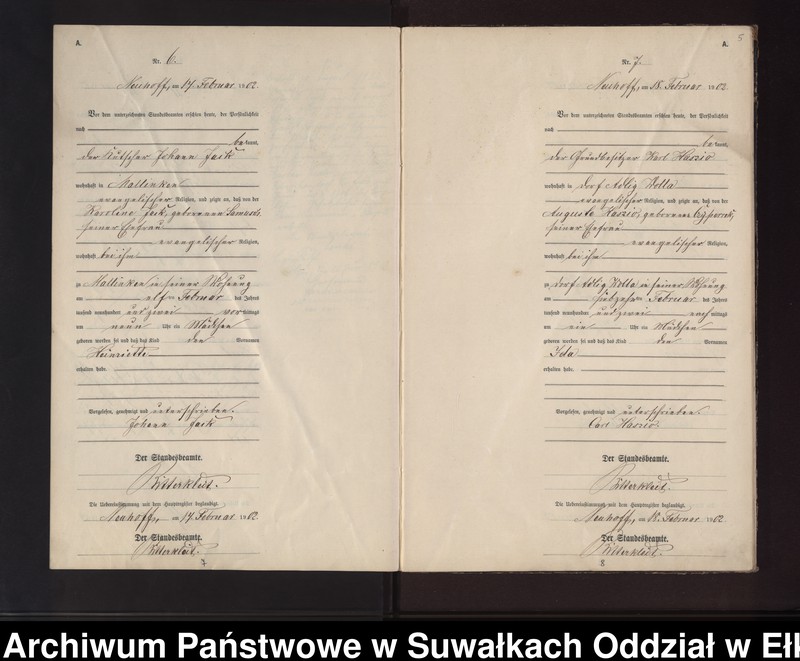 A.
Nr. 6.
Neuhoff, am 17. Februar 1902.
Vor dem unterzeichneten Standesbeamten erschien heute, der Persönlichkeit
nach
bekannt,
der Kutscher Johann Jack
wohnhaft in Mallinken
evangelischer Religion, und zeigte an, daß von der
Karoline Jack, geborenen
seiner Ehefrau
evangelischer Religion,
wohnhaft bei ihm
zu Mallinken in seiner Wohnung
am elften Februar des Jahres
tausend neunhundert und zwei vormittags
um neun Uhr ein Mädchen
geboren worden sei und daß das Kind den Vornamen
Henriette
erhalten habe.
Vorgelesen, genehmigt und unterschrieben.
Johann Jack
Der Standesbeamte.
Ritterkleit.
Die Uebereinstimmung mit dem Hauptregister beglaubigt.
Neuhoff, am 17. Februar 1902.
Der Standesbeamte.
Ritterkleit.
7
5
A.
Nr. 7.
Neuhoff, am 18. Februar 1902.
Vor dem unterzeichneten Standesbeamten erschien heute, der Persönlichkeit
nach
bekannt,
der Grundbesitzer Karl
wohnhaft in Dorf Adlig Wolla
evangelischer Religion, und zeigte an, daß von der
Auguste geborenen
seiner Ehefrau
evangelischer Religion,
wohnhaft bei ihm
zu Dorf Adlig Wolla in seiner Wohnung
am siebzehnten Februar des Jahres
tausend neunhundert und zwei nachmittags
um ein Uhr ein Mädchen
geboren worden sei und daß das Kind den Vornamen
Ida
erhalten habe.
Vorgelesen, genehmigt und unterschrieben.
Carl
Der Standesbeamte.
Ritterkleit.
Die Uebereinstimmung mit dem Hauptregister beglaubigt.
Neuhoff, am 18. Februar 1902
Der Standesbeamte.
Ritterkleit.
8
Archiwum Państwowe w Suwałkach Oddział w Ełk